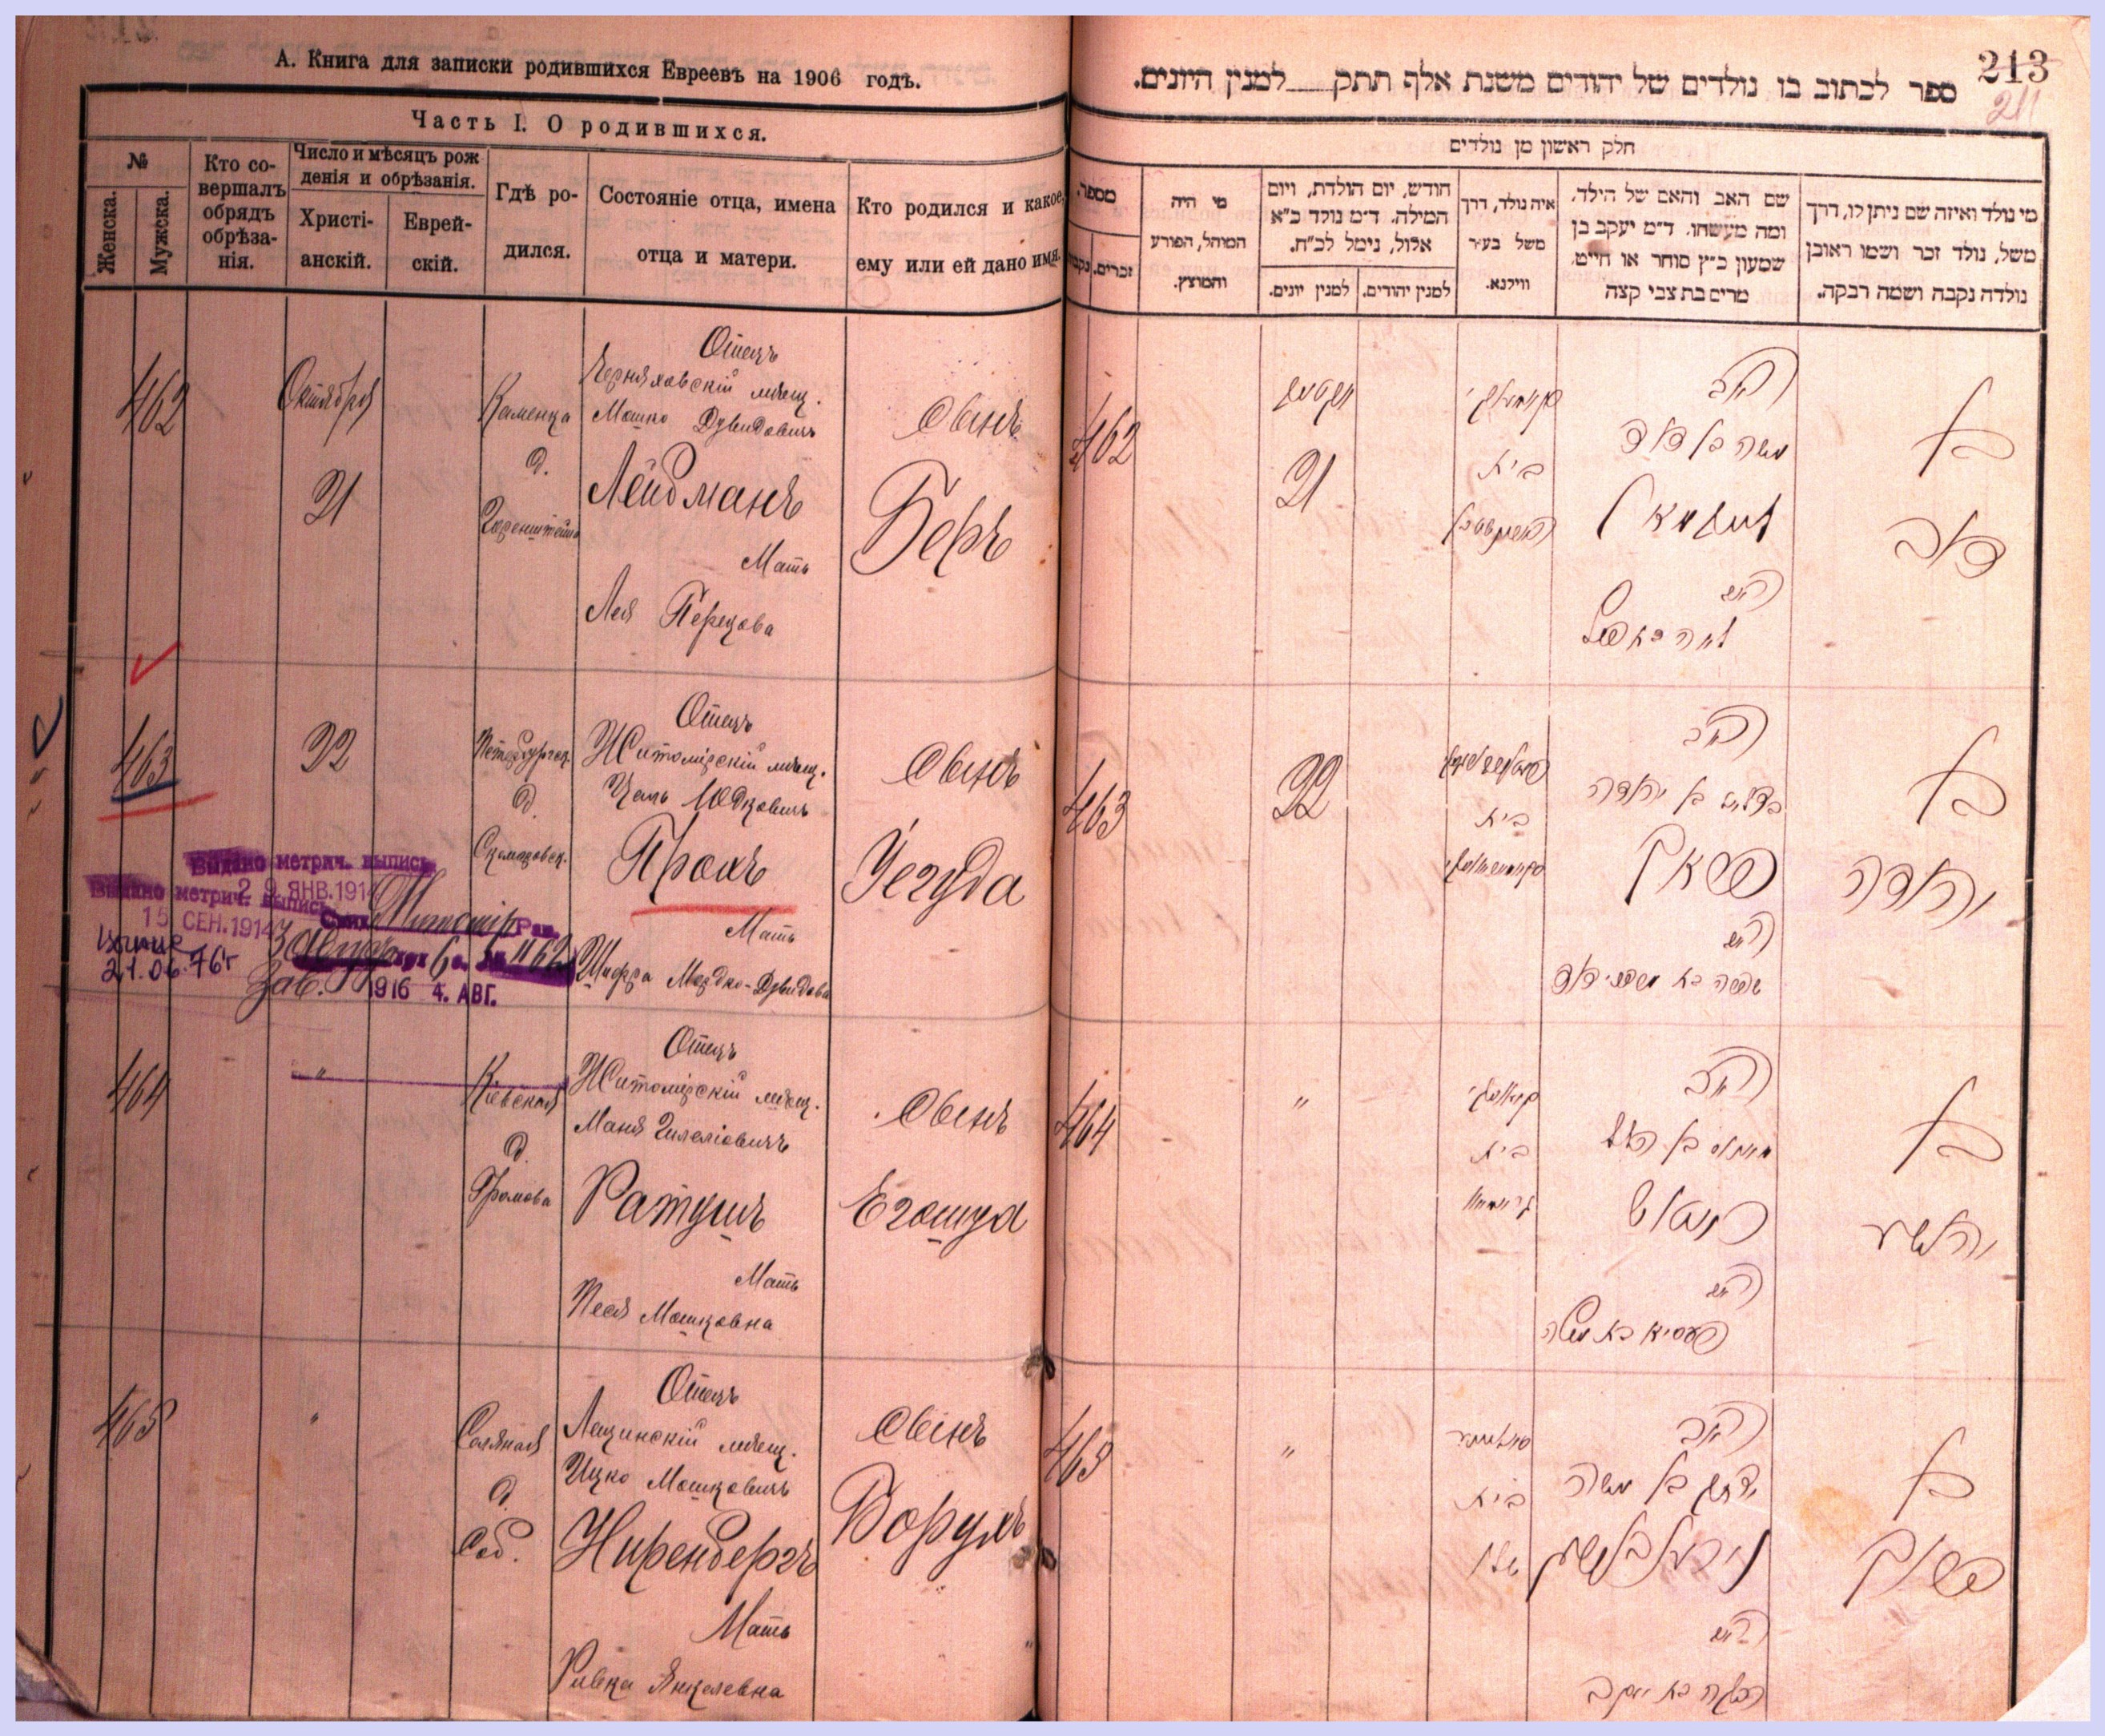 А. Книга для записки родившихся Евреевъ на 1906 годъ.
Часть I. О родившихся.
№
Женска.
Мужска.
Кто со-
вершалъ
обрядъ
обрѣза-
нія.
Число и мѣсяцъ рож
денія и обрѣзанія.
Христі-
анскій.
Еврей-
скій.
Гдѣ ро-
дился.
Состояніе отца, имена
отца и матери.
Кто родился и какое
ему или ей дано имя.
462
Октября
21
Каменка
д.
Отецъ
Черняховскій мѣщ.
Мошко Дувидовичъ
Лейдманъ
Мать
Лея Перецова
Сынъ
Беръ
463
22
Петербургск.
д.
Отецъ
Житомірскій мѣщ.
Цаль Юдковичъ
Проль
Мать
Шифра Мордко-Дувидова
Сынъ
Уегуда
Выдано метрич. выпись
29 ЯНВ. 1914
Выдано метрич. выпись
15 СЕН. 1914
21.06.76г
1916 4. АВГ.
464
"
Кіевская
д.
Громова
Отецъ
Житомірскій мѣщ.
Маня Гилеліовичъ
Ратушъ
Мать
Песя Мошковна
Сынъ
Егошуа
465
"
Соляная
д.
Соб.
Отецъ
Лещинскій мѣщ.
Ицко Мошковичъ
Ниренбергъ
Мать
Ривка Янкелевна
Сынъ
Борухъ
213
211
ספר לכתוב בו נולדים של יהודים משנת אלף תתק למנין היונים.
חלק ראשון מן נולדים
מספר.
זכרים.
מי היה
המוהל, הפורע
והמוצץ.
חודש, יום הולדת, ויום
המילה. ד״מ נולד כ״א
אלול, נימל לכ״ח.
למנין יונים.
למנין יהודים.
איה נולד, דרך
משל בעיר
ווילנא.
שם האב והאם של הילד,
ומה מעשהו. ד״מ יעקב בן
שמעון כ״ץ סוחר או חייט,
מרים בת צבי קצה
מי נולד ואיזה שם ניתן לו, דרך
משל, נולד זכר ושמו ראובן
נולדה נקבה ושמה רבקה.
462
21
בית
האב
משה בן דוד
לײדמאן
האם
לאה בת פרץ
בן
דוב
463
22
בית
האב
בצלאל בן יהודה
האם
שפרה בת מרדכי דוד
בן
יהודה
464
"
בית
האב
ראטוש
האם
פעסיא בת משה
בן
יהושע
465
"
בית
האב
יצחק בן משה
נירענבערג
האם
רבקה בת יעקב
בן
ברוך